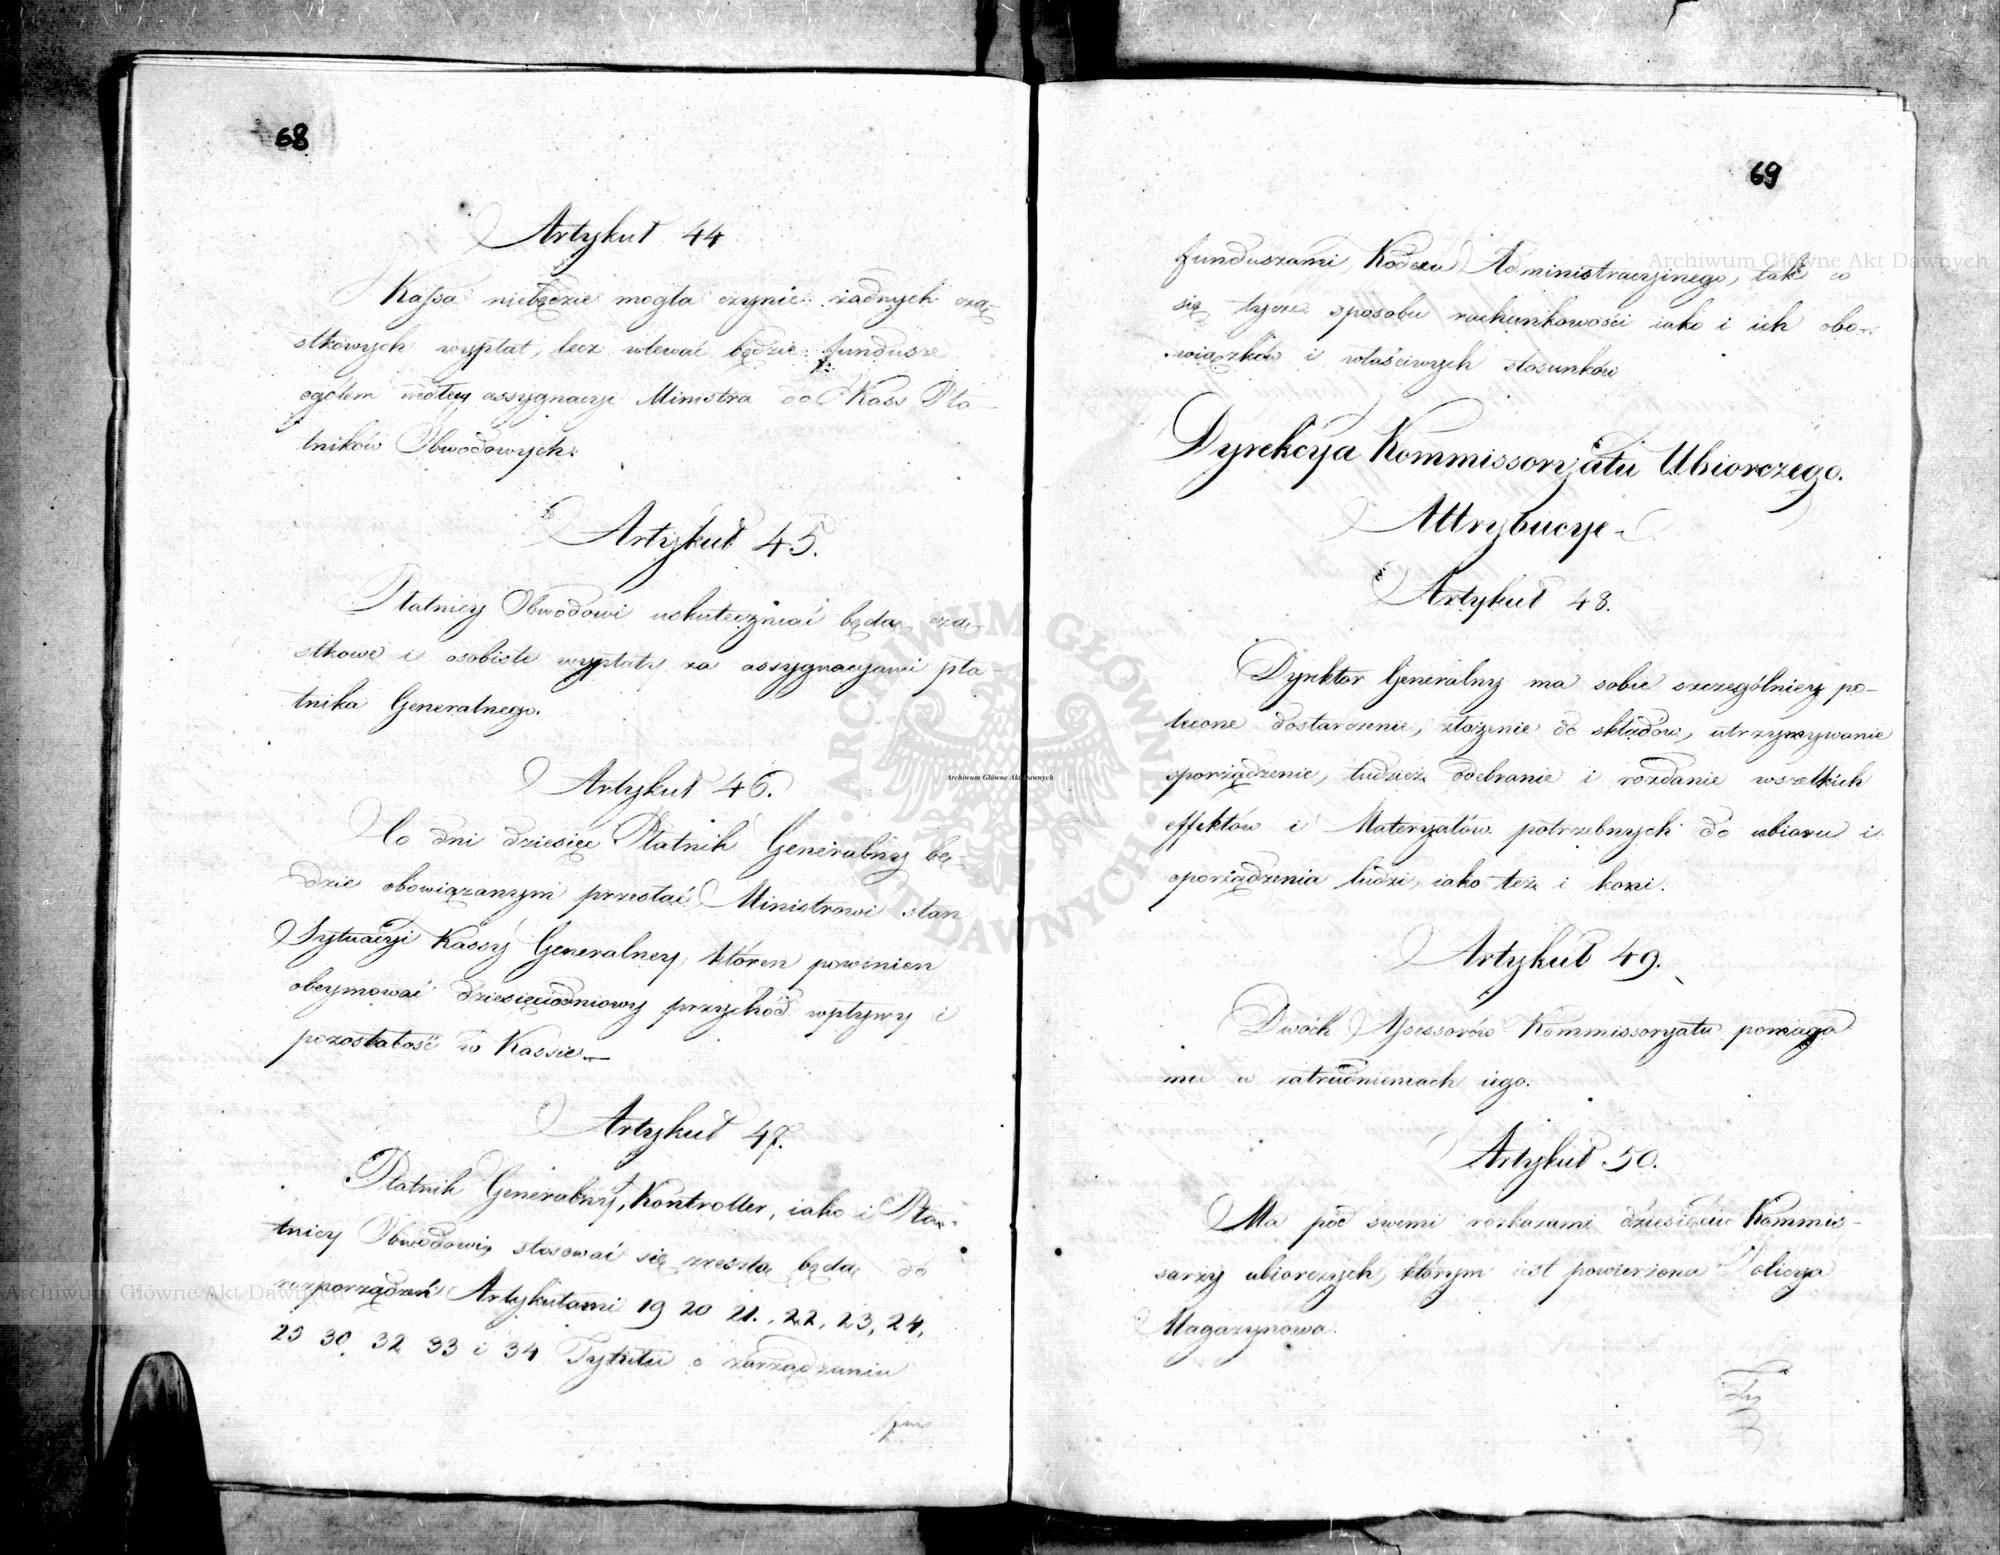 68
Artykuł 44
Kassa niebędzie mogła czynić żadnych czą-
stkowych wypłat, lecz wlewać będzie fundusze
ogółem według assygnacyi Ministra do Kass Pła-
tników Obwodowych.
Artykuł 45.
Płatnicy Obwodowi uskuteczniać będą czą-
stkowe i osobiste wypłaty za assygnacyami pła-
tnika Generalnego.
Artykuł 46.
Co dni dziesięć Płatnik Generalny bę-
dzie obowiązanym przesłać Ministrowi stan
Sytuacyi Kassy Generalney, któren powinien
obeymować dziesięciodniowy przychód wpływy i
pozostałość w Kassie.—
Artykuł 47.
Płatnik Generalny, Kontroller, iako i Pła-
tnicy Obwodowi, stosować się zresztą będą do
rozporządzeń Artykułami 19 20 21., 22, 23, 24,
29 30, 32 33 i 34 Tytułu o zarządzaniu
fun
69
funduszami, Kodexu Administracyinego, tak co
się tycze sposobu rachunkowości iako i ich obo-
wiązków i właściwych stosunków
Dyrekcya Kommissoryatu Ubiorczego.
Attrybucye -
Artykuł 48.
Dyrektor Generalny ma sobie szczególniey po-
lecone dostarczenie, złożenie do składów, utrzymywanie
sporządzenie, tudzież odebranie i rozdanie wszelkich
effektów i Materyałów potrzebnych do ubioru i
oporządzenia ludzi, iako też i koni.
Artykuł 49.
Dwóch Assessorów Kommissoryatu pomaga
mu w zatrudnieniach iego.
Artykuł 50.
Ma pod swemi rozkazami dziesięciu Kommis-
sarzy ubiorczych, którym iest powierzona Policya
Magazynowa.
Archiwum Główne Akt Dawnych
Archiwum Główne Akt Dawnych
Archiwum Główne Akt Dawnych
ARCHIWUM GŁÓWNE AKT DAWNYCH